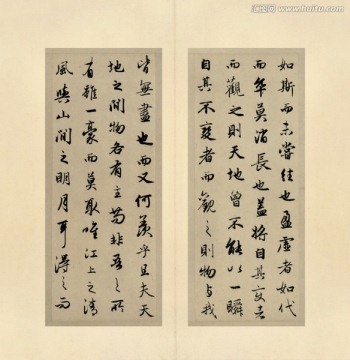 如斯而未嘗往也盈虛者如代
而卒莫消長也盖將自其变者
而觀之則天地曾不能以一瞬
自其不變者而觀之則物与我
皆無盡也而又何羨乎且夫天
地之間物各有主苟非吾之所
有雖一豪而莫取唯江上之清
風與山間之明月耳得之而